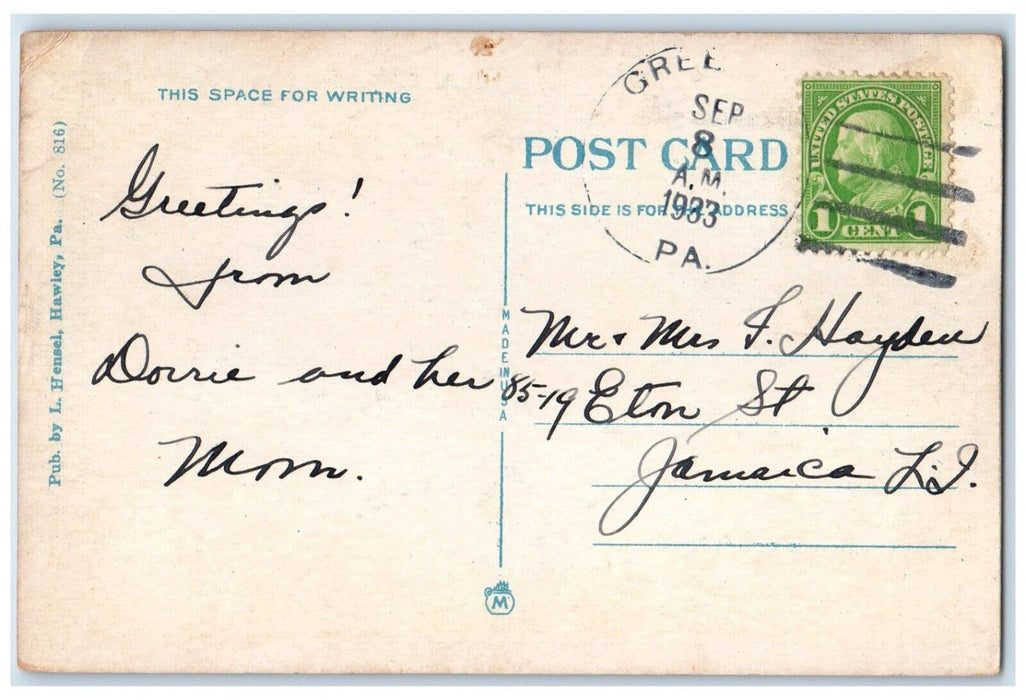 THIS SPACE FOR WRITING
Pub. by L. Hensel, Hawley, Pa. (No. 816)
Greetings!
from
Dorrie and her
Mom.
MADE IN USA
M
POST CARD
THIS SIDE IS FOR ADDRESS
SEP
8
A.M.
1933
PA.
UNITED STATES POSTAGE
1 CENT 1
Mr & Mrs F. Hayden
85-19 Eton St
Jamaica L.I.